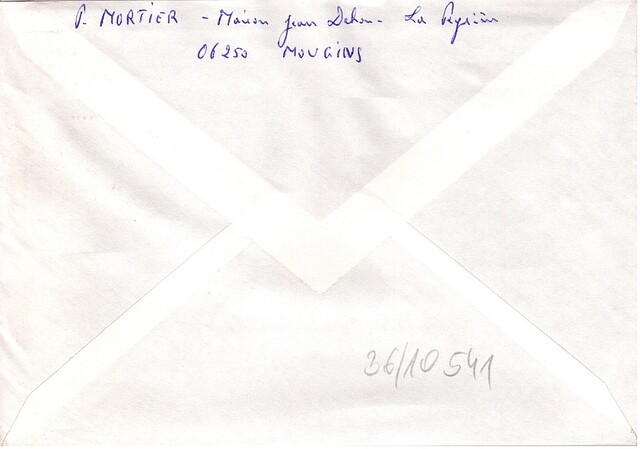 P. MORTIER - Maison Jean Dehon - La Peyrière
06250 MOUGINS
36/10 541